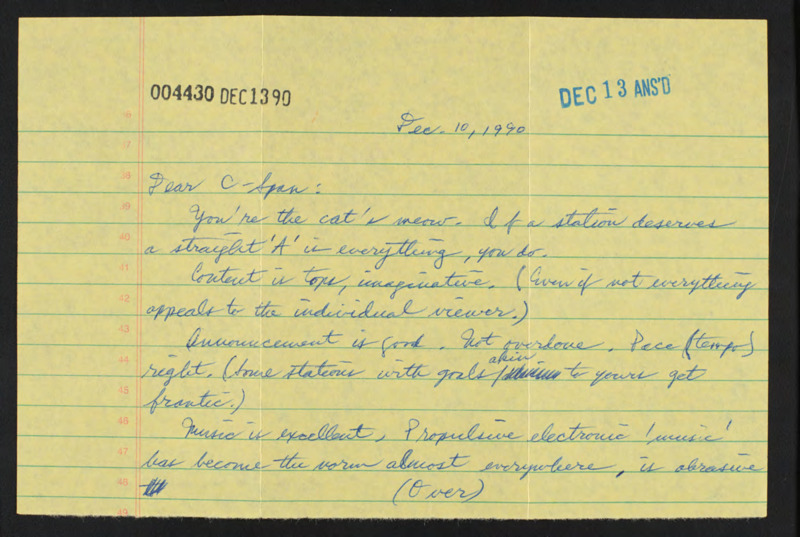 004430 DEC 13 90
DEC 13 ANS'D
Dec. 10, 1990
Dear C-Span:
You're the cat's meow. If a station deserves
a straight 'A' in everything, you do.
Content is tops, imaginative. (Even if not everything
appeals to the individual viewer.)
Announcement is good. Not overdone. Pace (tempo)
right. (Some stations with goals akin to yours get
frantic.)
Music is excellent. Propulsive electronic 'music'
has become the norm almost everywhere, is abrasive
(Over)
6
37
38
39
40
41
42
43
44
45
46
47
48
49